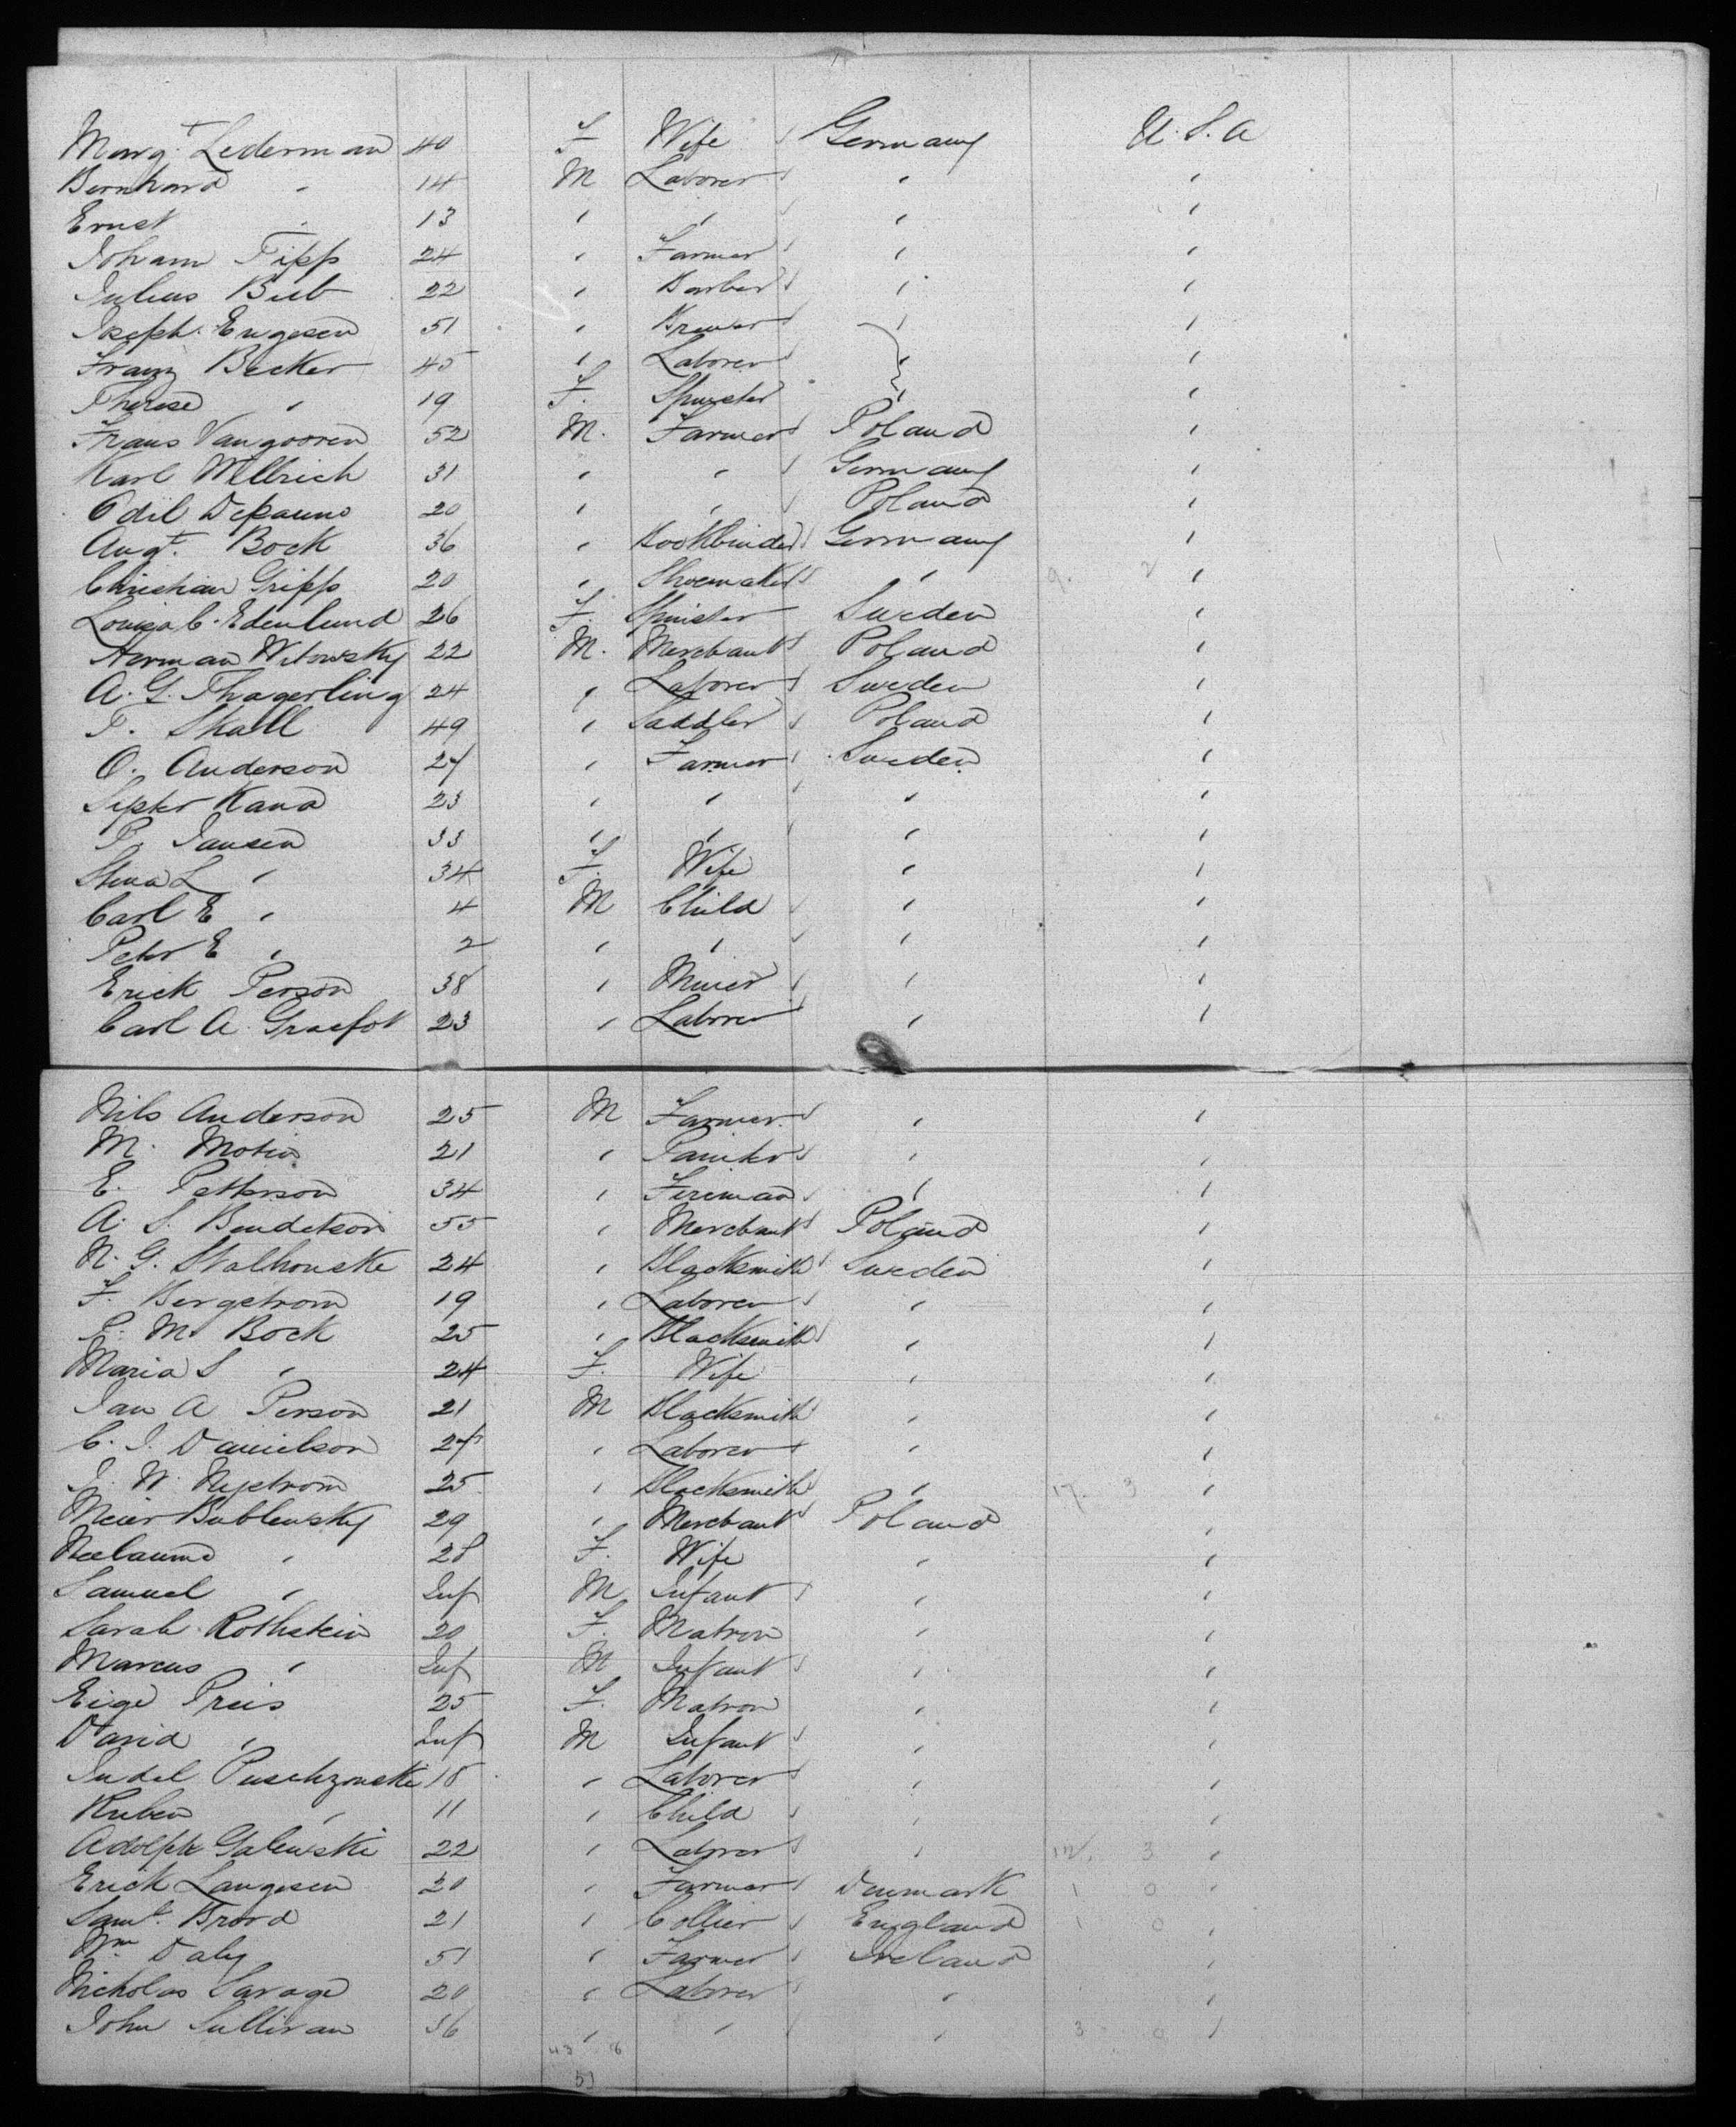 Margt. Lederman 40 F Wife Germany U.S.A
Bernhard " 14 M Laborer " "
Ernst " 13 " " " "
Johann Tipp 24 " Farmer " "
Julius Bieb 22 " Barber " "
Joseph Engesen 51 " Brewer " "
Franz Becker 45 " Laborer " "
Therese " 19 F. Spinster " "
Frans Vangooren 52 M. Farmer Poland "
Karl Wellrich 31 " " Germany "
Odil Depauno 20 " " Poland "
Augt. Bock 36 " Bookbinder Germany "
Christian Gripp 20 " Shoemaker " "
Louisa C. Edenlund 26 F. Spinster Sweden "
Herman Witowsky 22 M. Merchant Poland "
A. G. Thagerling 24 " Laborer Sweden "
T. Skall 49 " Saddler Poland "
O. Anderson 27 " Farmer Sweden "
Kana 23 " " " "
P. Jansen 33 " " " "
Stina L " 34 F. Wife " "
Carl E " 4 M Child " "
Peter E " 2 " " " "
Erick Person 38 " Miner " "
Carl A. Graefot 23 " Laborer " "
Nils Anderson 25 M Farmer " "
M. 21 " Painter " "
E. Petterson 34 " Fireman " "
A. S. Bendetson 55 " Merchant Poland "
N. G. Stalhouske 24 " Blacksmith Sweden "
F. Bergstrom 19 " Laborer " "
P. M. Bock 25 " Blacksmith " "
Maria S " 24 F. Wife " "
Jan A Person 21 M Blacksmith " "
C. J. Danielson 27 " Laborer " "
J. W. Nystrom 25 " Blacksmith " 17. 3 "
Meier Bublensky 29 " Merchant Poland "
" 28 F. Wife " "
Samuel " Inf M Infant " "
Sarah Rothstein 20 F. Matron " "
Marcus " Inf M Infant " "
Eige Preis 25 F. Matron " "
David " Inf M Infant " "
Judel Puschzouski 18 " Laborer " "
Ruben " 11 " Child " "
Adolph Galewski 22 " Laborer " 12. 3 "
Erick Langesen 20 " Farmer Denmark 1 0 "
Saml. Brood 21 " Collier England 1 0 "
Wm Daly 51 " Farmer Ireland "
Nicholas Savage 20 " Laborer " "
John Sullivan 36 " " " 3 0 "
43 8
51